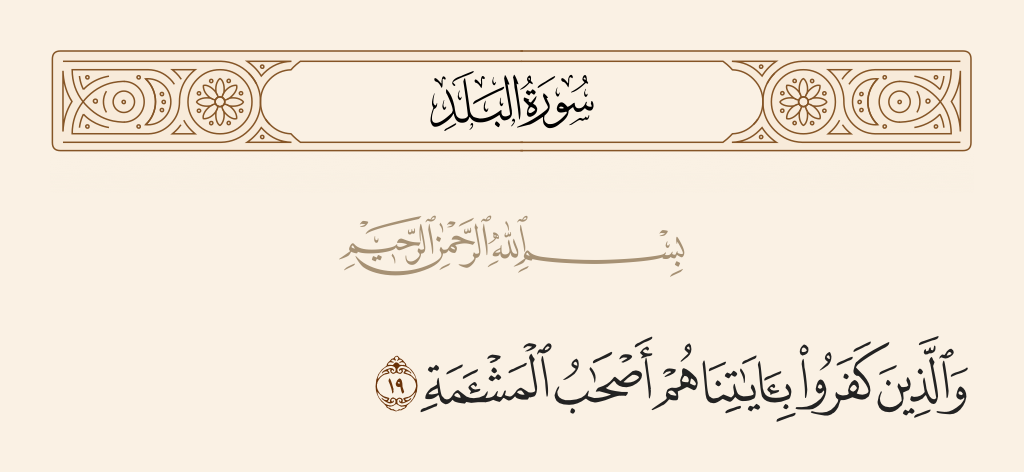 سُورَةُ البَلَدِ
بِسْمِ ٱللَّهِ ٱلرَّحْمَٰنِ ٱلرَّحِيمِ
وَٱلَّذِينَ كَفَرُوا۟ بِـَٔايَٰتِنَا هُمْ أَصْحَٰبُ ٱلْمَشْـَٔمَةِ ١٩